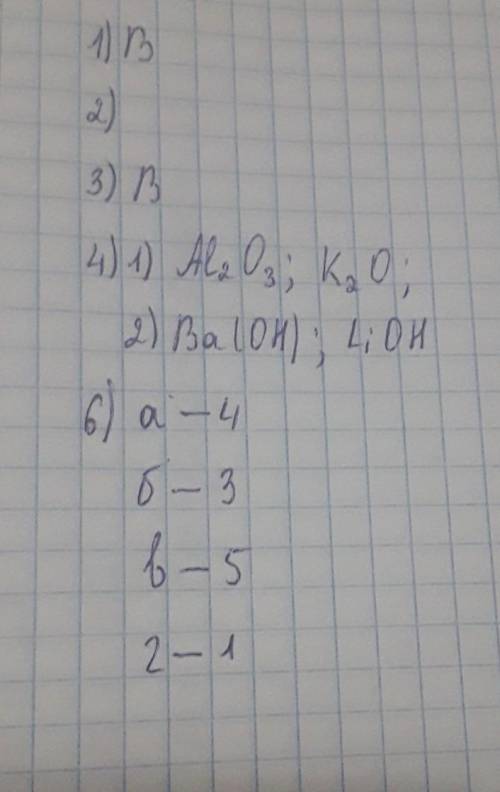 1) В
2)
3) В
4) 1) Al₂O₃; K₂O;
2) Ba(OH); LiOH
6) а – 4
б – 3
в – 5
г – 1